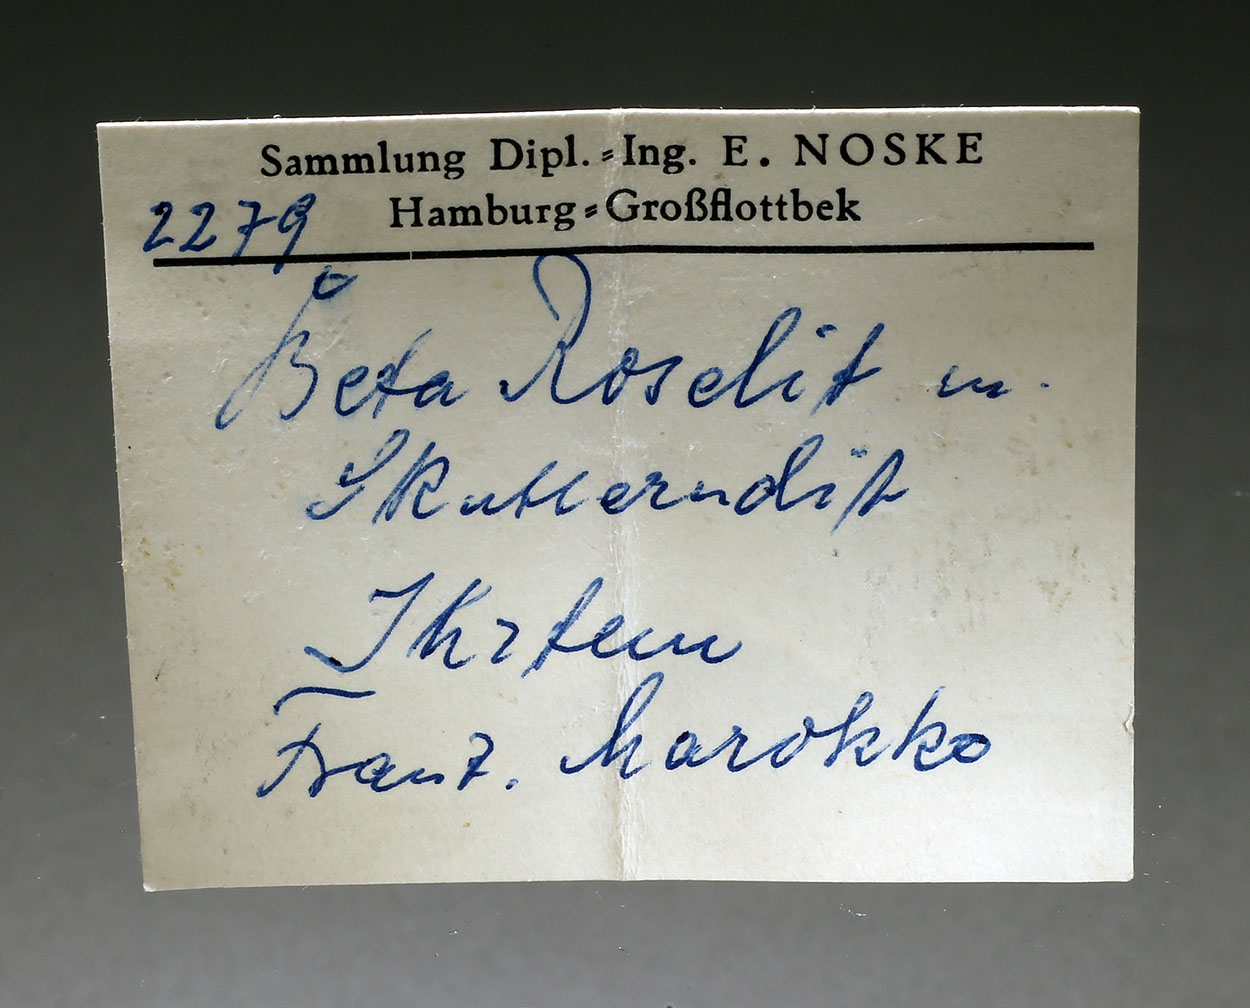 Sammlung Dipl.-Ing. E. NOSKE
Hamburg-Großflottbek
2279
Beta Roselit m.
Skutterudit
Ihrtem
Franz. Marokko